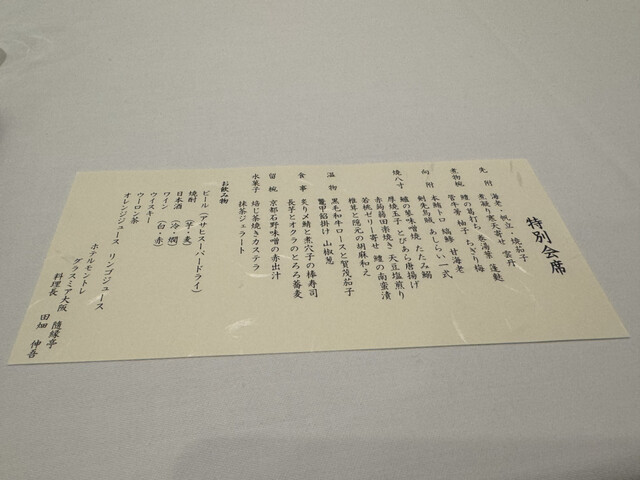 特別会席
先 附 海老・帆立・焼茄子
煮凝り寒天寄せ 雲丹
煮物椀 鱧の葛打ち 巻湯葉 蓬麩
管牛蒡 柚子 ちぎり梅
向 附 本鮪トロ 縞鯵 甘海老
剣先烏賊 あしらい一式
焼八寸 鱸の琴味噌焼 たたみ鰯
厚焼玉子 とびあら唐揚げ
赤蒟蒻田楽焼き 天豆塩煎り
若桃ゼリー寄せ 鱧の南蛮漬
椎茸と隠元の胡麻和え
温 物 黒毛和牛ロースと賀茂茄子
鼈甲餡掛け 山椒葱
食 事 炙り〆鯖と煮穴子の棒寿司
長芋とオクラのとろろ蕎麦
留 椀 京都石野味噌の赤出汁
水菓子 焙じ茶焼きカステラ
抹茶ジェラート
お飲み物
ビール (アサヒスーパードライ)
焼酎 (芋・麦)
日本酒 (冷・燗)
ワイン (白・赤)
ウイスキー
ウーロン茶
オレンジジュース リンゴジュース
ホテルモントレ
グラスミア大阪 隨縁亭
料理長 田畑 伸吾